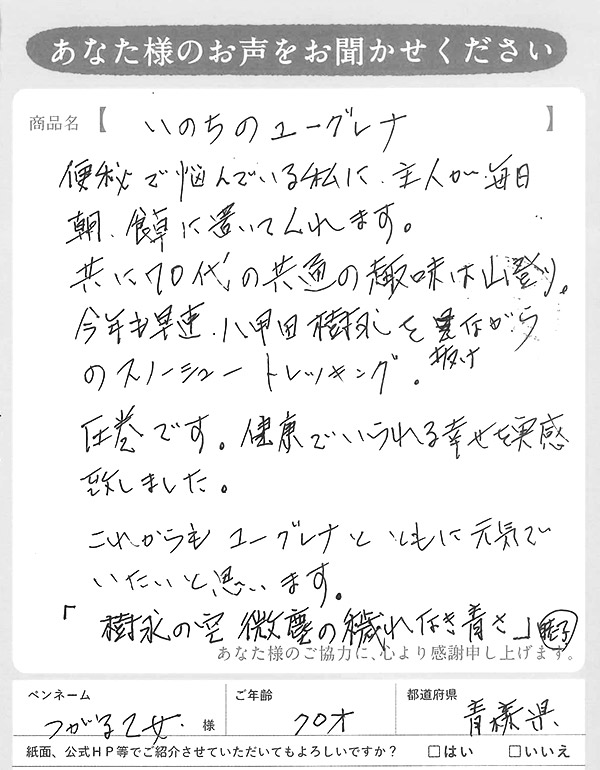 あなた様のお声をお聞かせください
商品名【 いのちのユーグレナ 】
便秘で悩んでいる私に、主人が毎日
朝、食卓に置いてくれます。
共に70代の共通の趣味は山登り。
今年も早速、八甲田樹氷を見ながら
のスノーシュートレッキング。
圧巻です。健康でいられる幸せを実感
致しました。
これからもユーグレナとともに元気で
いたいと思います。
「樹氷の空 微塵の穢れなき青さ」
あなた様のご協力に、心より感謝申し上げます。
ペンネーム ご年齢 都道府県
つがる乙女 様 70才 青森県
紙面、公式HP等でご紹介させていただいてもよろしいですか? □はい □いいえ